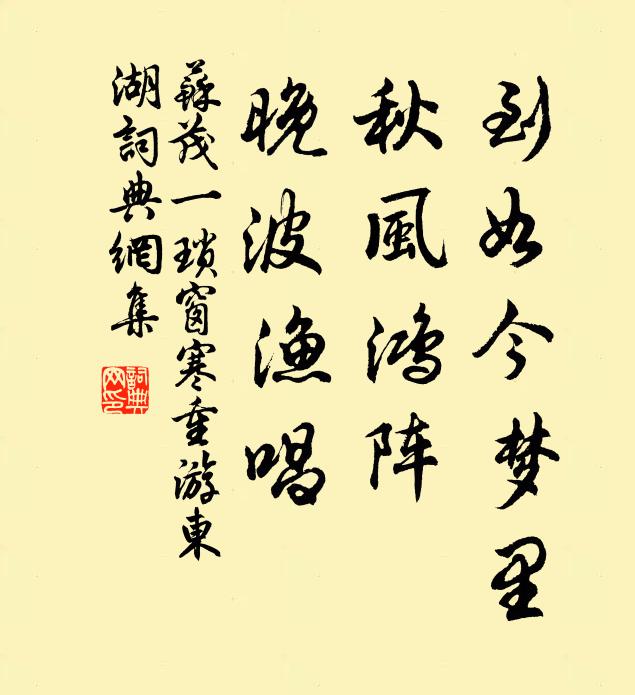 到如今梦里
秋風鸿阵
晚波渔唱
蘇茂一瑣窗寒重游東
湖詞典網集
詞典网印